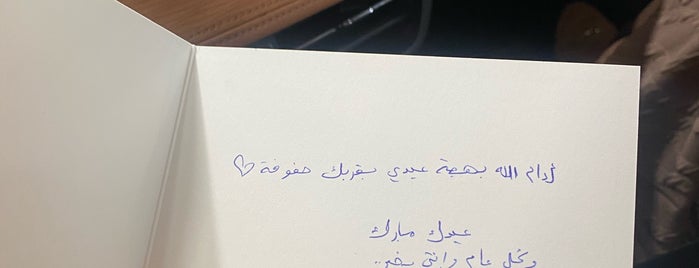 أدام الله بهجة عيدي بقربك حفوفة ♡
عيدك مبارك
وكل عام وانتي بخير..